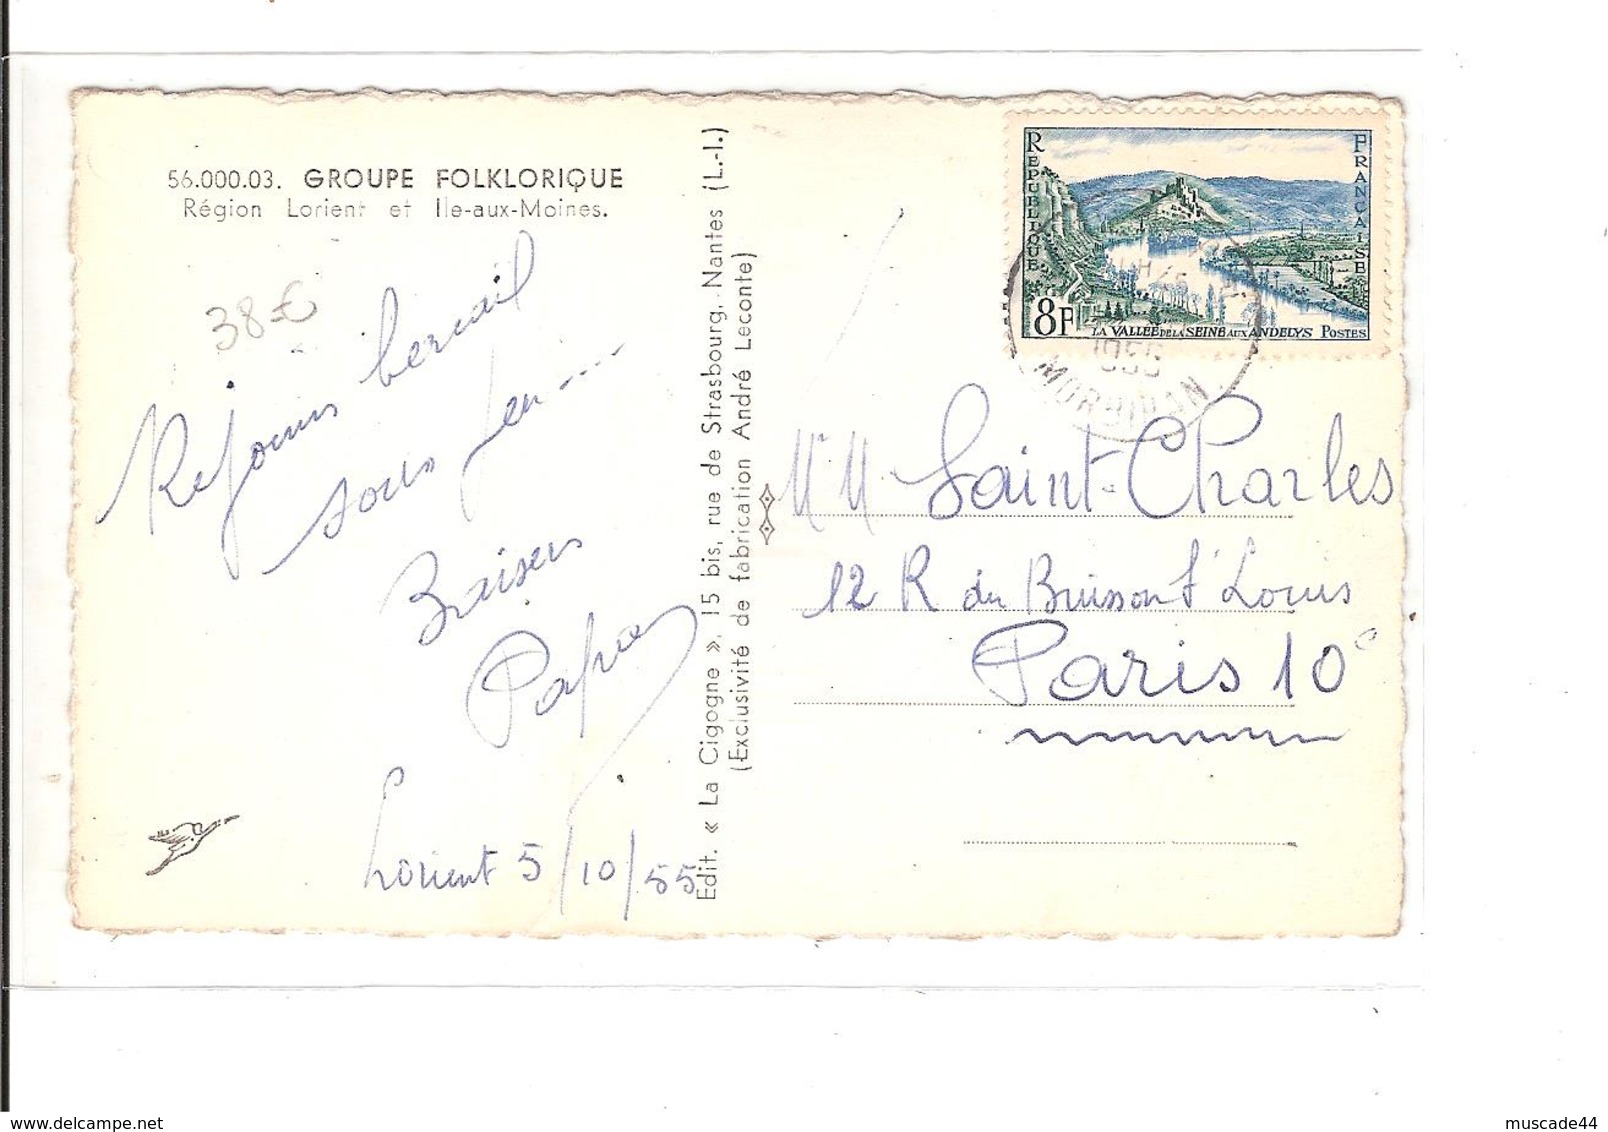 56.000.03. GROUPE FOLKLORIQUE
Région Lorient et Ile-aux-Moines.
38 €
Rejoins bercail
sous peu ....
Baisers
Papa
Lorient 5/10/55
Edit. « La Cigogne », 15 bis, rue de Strasbourg, Nantes (L.-I.)
(Exclusivité de fabrication André Leconte)
REPUBLIQUE
FRANCAISE
8F
LA VALLEE DE LA SEINE AUX ANDELYS POSTES
1955
MORBIHAN
Saint-Charles
12 R du Buisson St Louis
Paris 10e
muscade44